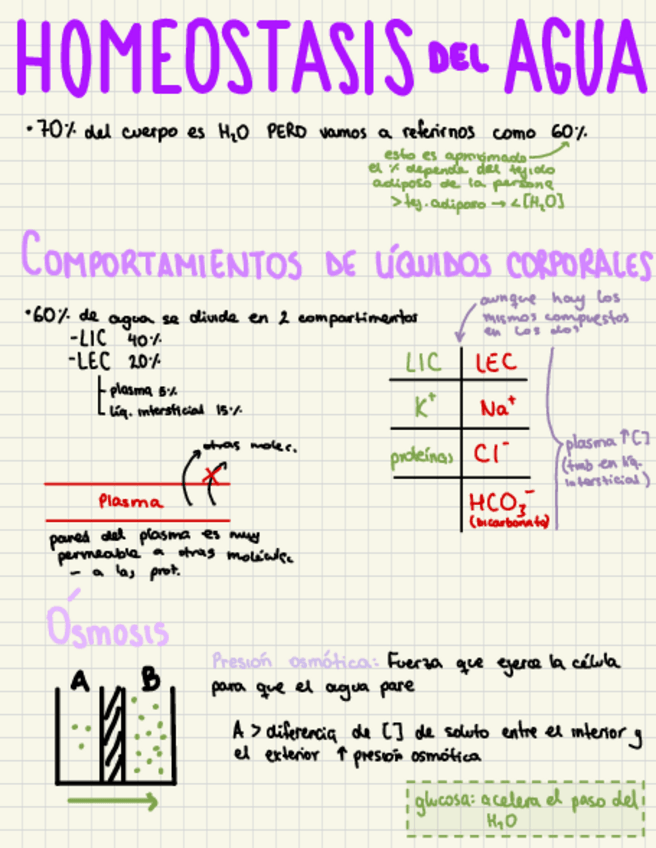 HOMEOSTASIS DEL AGUA
• 70% del cuerpo es H₂O PERO vamos a referirnos como 60%
esto es aproximado
el % depende del tejido
adiposo de la persona
> tej. adiposo → < [H₂O]
COMPORTAMIENTOS DE LÍQUIDOS CORPORALES
• 60% de agua se divide en 2 compartimentos
- LIC 40%
- LEC 20%
plasma 5%
líq. intersticial 15%
aunque hay los
mismos compuestos
en los dos
LIC LEC
K⁺ Na⁺
proteínas Cl⁻
HCO₃⁻
(bicarbonato)
plasma ↑ [ ]
(tmb en líq.
intersticial)
otras molec.
Plasma
pared del plasma es muy
permeable a otras molécula
- a las prot.
Ósmosis
A B
Presión osmótica: Fuerza que ejerce la célula
para que el agua pare
A > diferencia de [ ] de soluto entre el interior y
el exterior ↑ presión osmótica
glucosa: acelera el paso del
H₂O